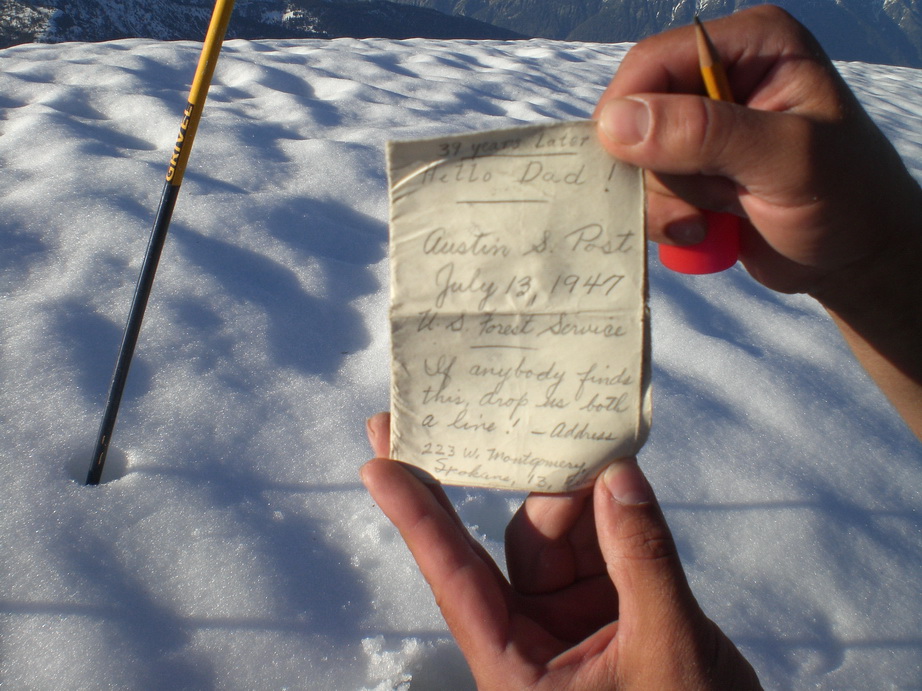 GRIVEL
39 years Later
Hello Dad!
Austin S. Post
July 13, 1947
U. S. Forest Service
If anybody finds
this, drop us both
a line! - Address
223 W. Montgomery,
Spokane, 13,